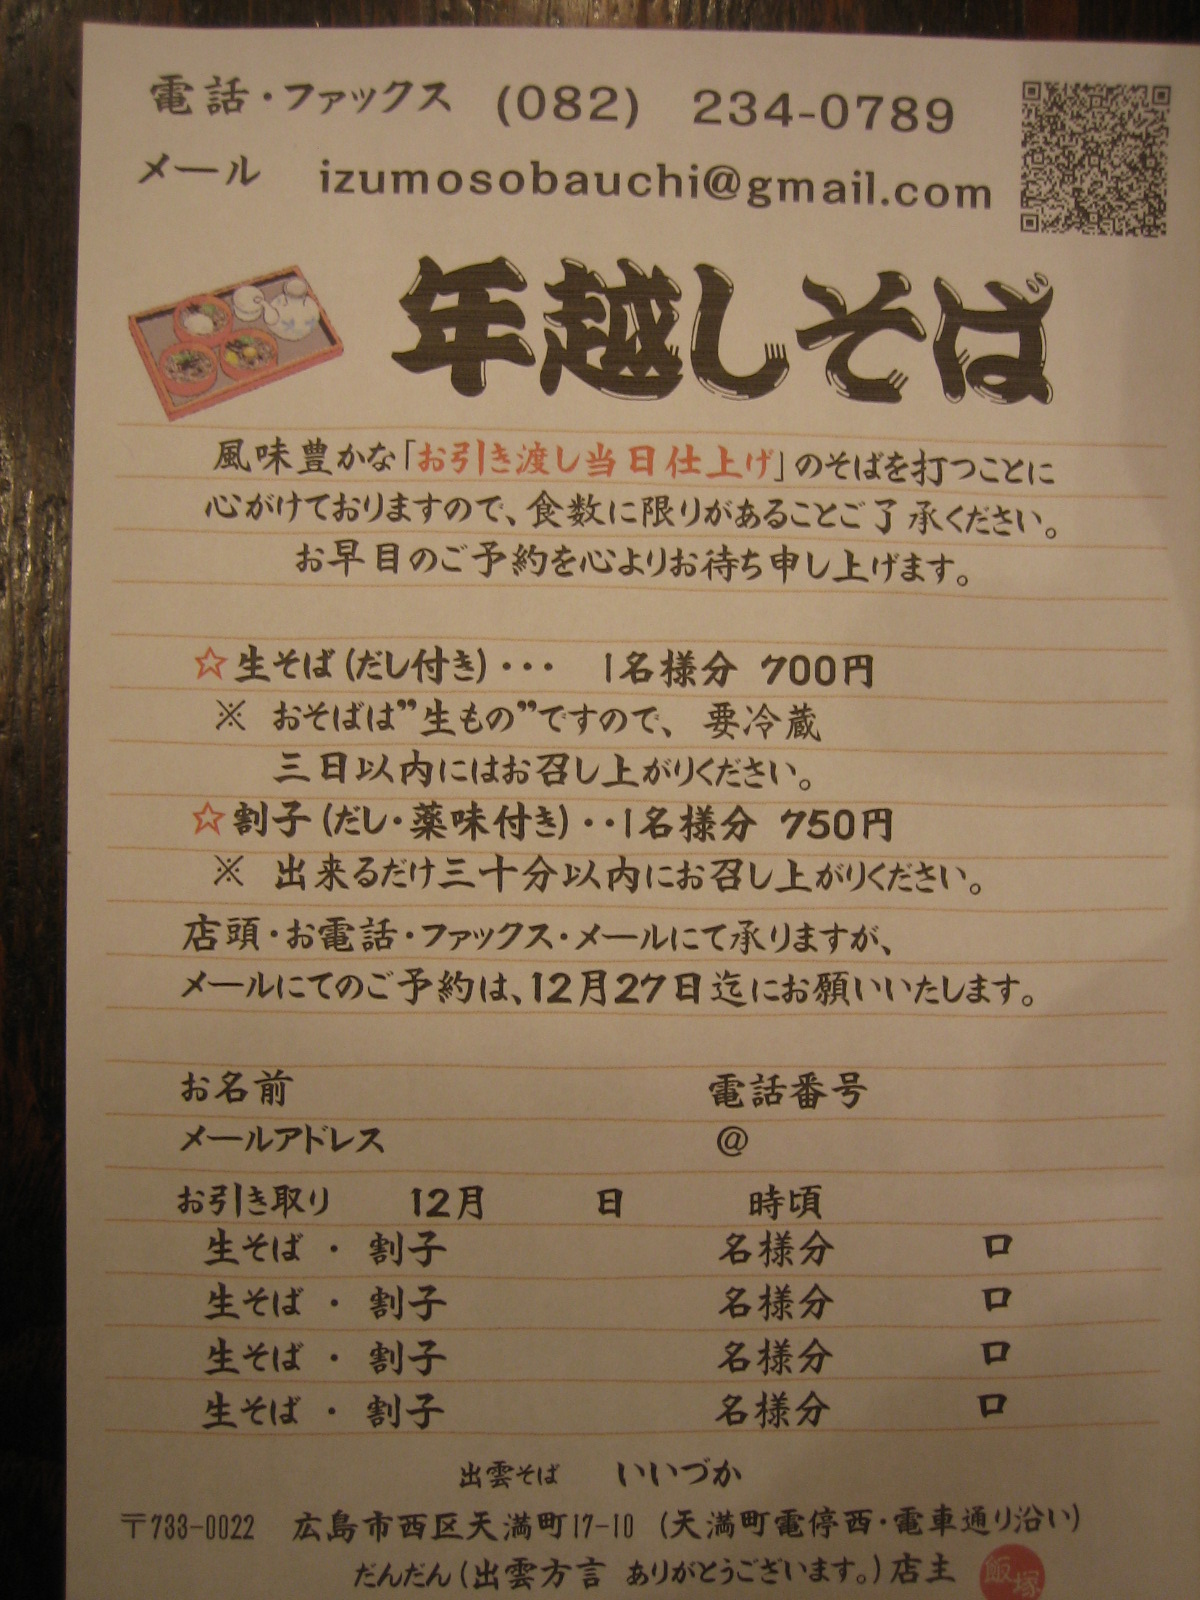 電話・ファックス (082) 234-0789
メール izumosobauchi@gmail.com
年越しそば
風味豊かな「お引き渡し当日仕上げ」のそばを打つことに
心がけておりますので、食数に限りがあることご了承ください。
お早目のご予約を心よりお待ち申し上げます。
☆生そば(だし付き)・・・ 1名様分 700円
※ おそばは”生もの”ですので、要冷蔵
三日以内にはお召し上がりください。
☆割子(だし・薬味付き)・・1名様分 750円
※ 出来るだけ三十分以内にお召し上がりください。
店頭・お電話・ファックス・メールにて承りますが、
メールにてのご予約は、12月27日迄にお願いいたします。
お名前 電話番号
メールアドレス @
お引き取り 12月 日 時頃
生そば ・ 割子 名様分 口
生そば ・ 割子 名様分 口
生そば ・ 割子 名様分 口
生そば ・ 割子 名様分 口
出雲そば いいづか
〒733-0022 広島市西区天満町17-10 (天満町電停西・電車通り沿い)
だんだん(出雲方言 ありがとうございます。)店主 飯塚